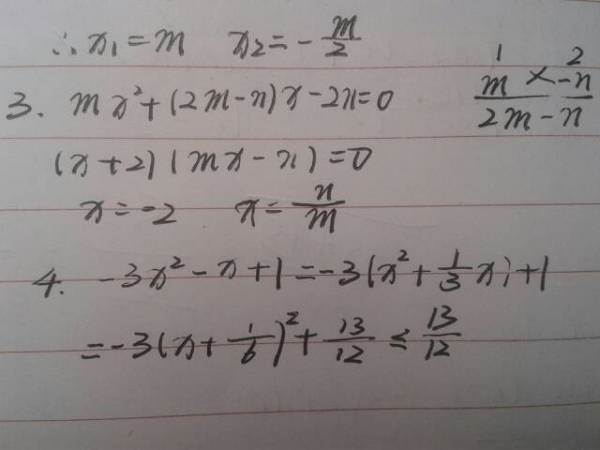 ∴ x₁ = m   x₂ = -m/2
3. mx² + (2m-n)x - 2n = 0
(x+2)(mx-n) = 0
x = -2   x = n/m
1   2
m × -n
2m - n
4. -3x² - x + 1 = -3(x² + 1/3 x) + 1
= -3(x + 1/6)² + 13/12 ≤ 13/12